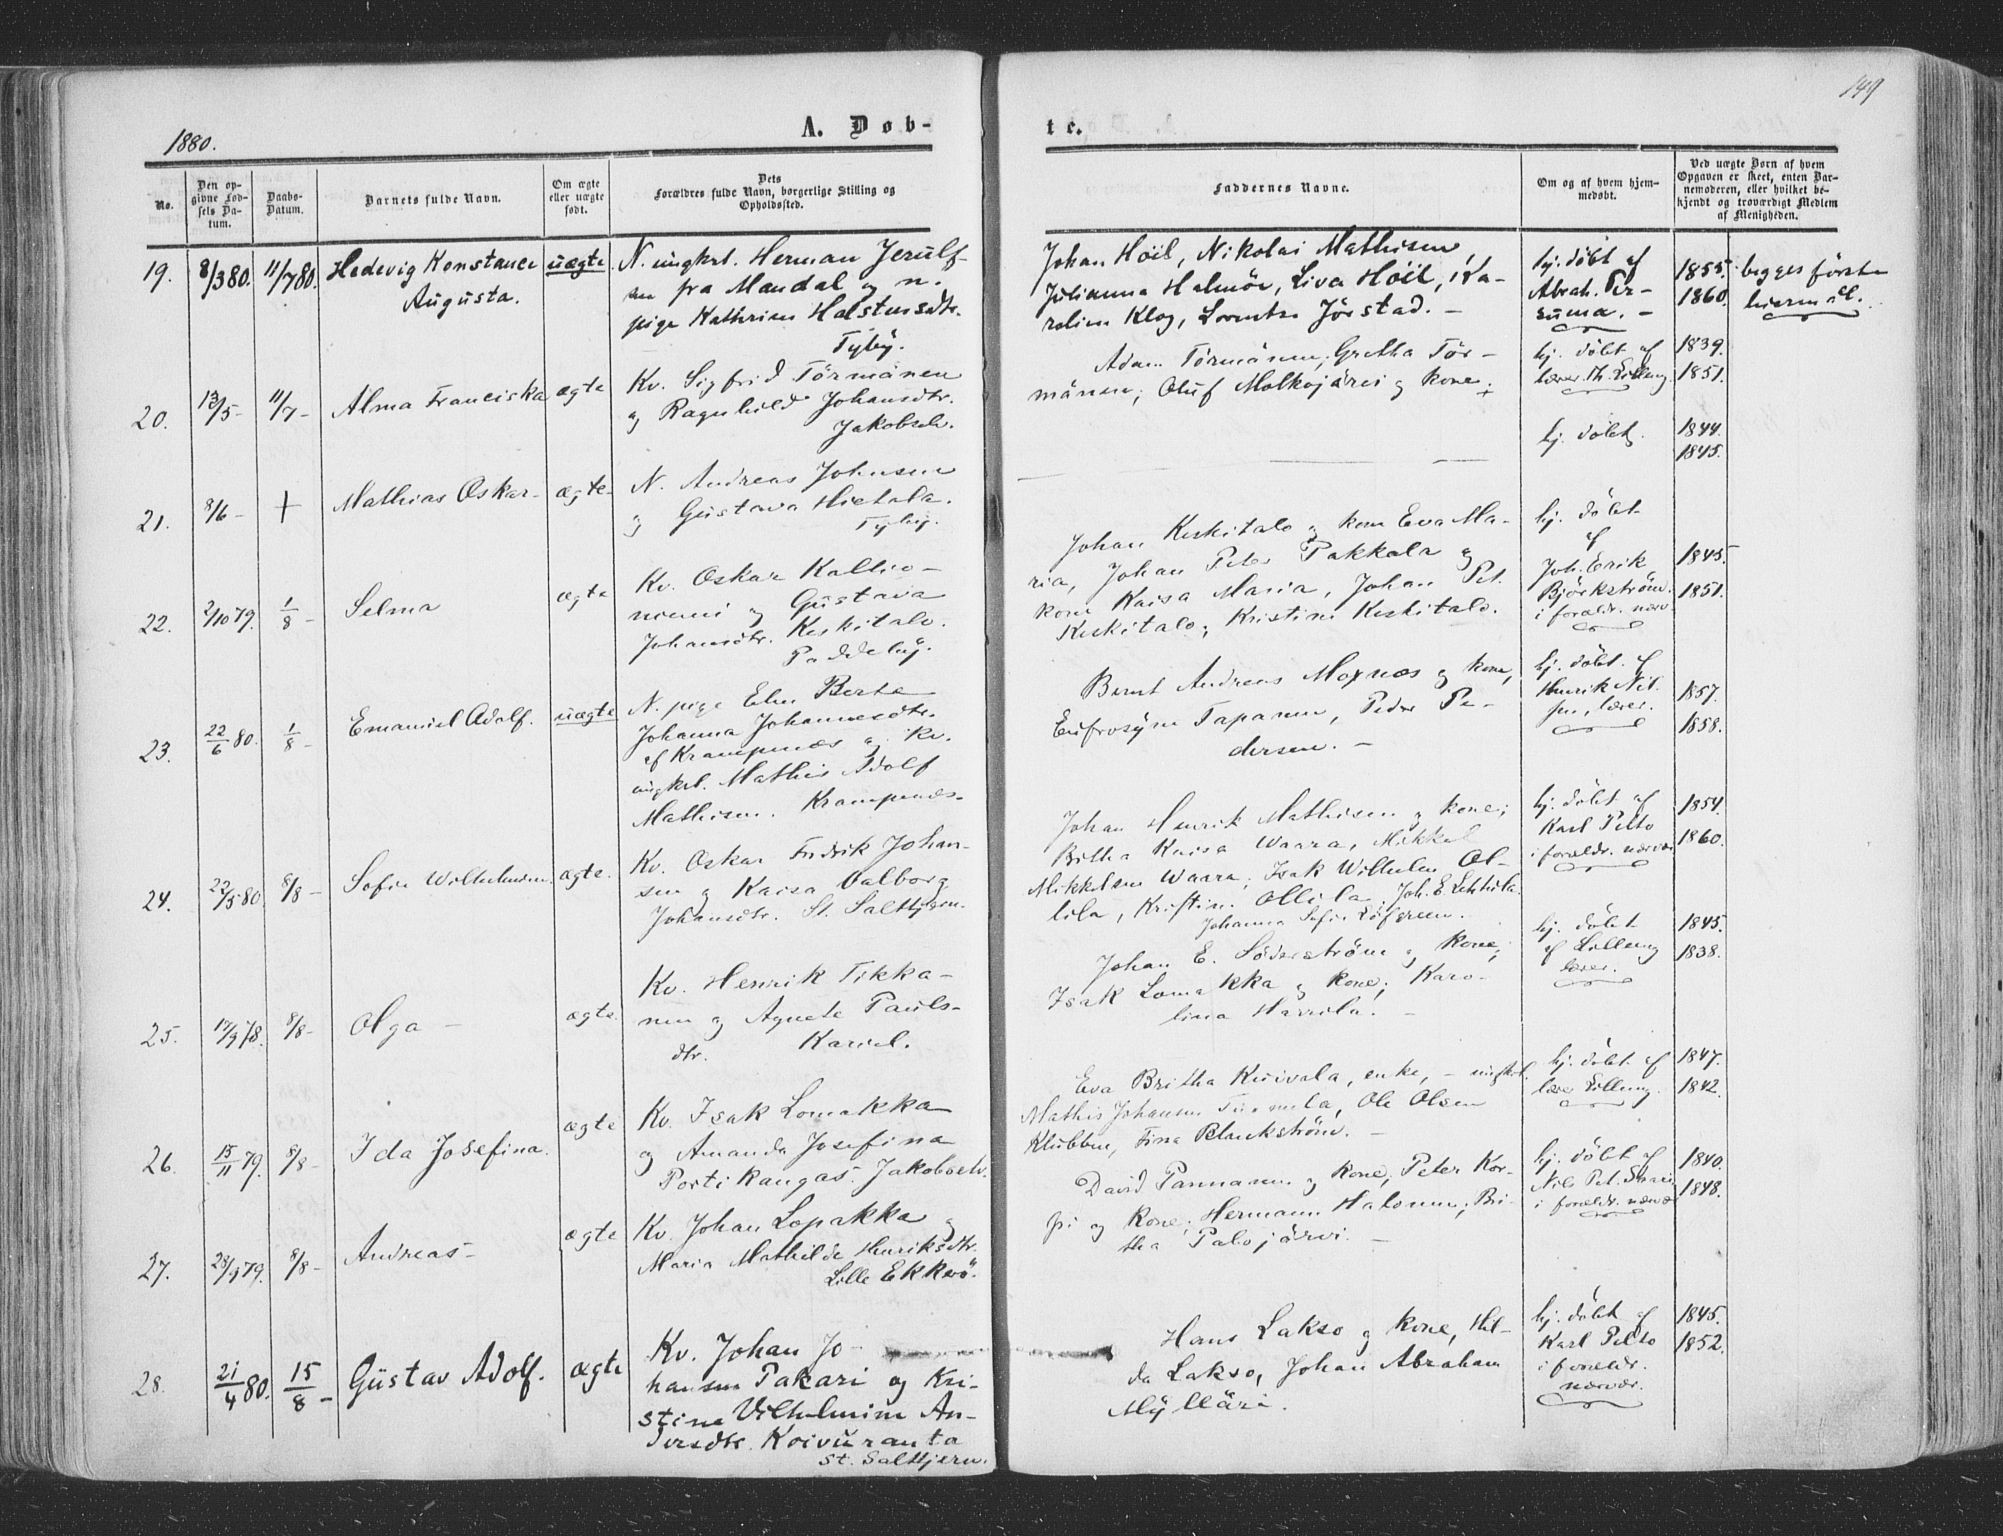 149
1880.
A. Døb-
te.
No.
Den op-
givne Fød-
sels Da-
tum.
Daabs-
Datum.
Barnets fulde Navn.
Om ægte
eller uægte
født.
Dets
Forældres fulde Navn, borgerlige Stilling og
Opholdssted.
Faddernes Navne.
Om og af hvem hjem-
medøbt.
Ved uægte Børn af hvem
Opgaven er skeet, enten Bar-
nemoderen, eller hvilket be-
kjendt og troværdigt Medlem
af Menigheden.
19. 8/3 80. 11/7 80. Hedevig Konstance
Augusta.
uægte
N. ungkrl. Herman Jerulf-
sen fra Mandal og n.
pige Kathrine Halstensdtr.
Tyby.
Johan Höil, Nikolai Mathisen,
Julianna Halmöe, Liva Höil, Ka-
roline Klog, Lorentse Jörstad. -
hj. döbt af
Abrah. Per-
suma. -
1855.
1860.
begges förste
leiermaal.
20. 13/5 - 11/7 - Alma Franciska
ægte
Kv. Sigfrid Törmänen
og Ragnhild Johansdtr.
Jakobselv.
Adam Törmänen, Gretha Tör-
mänen; Oluf Molkojärvi og kone.
hj. döbt af
lærer Th. Lilleng.
1839.
1851.
21. 8/6 - + Mathias Oskar -
ægte -
N. Andreas Johnsen
og Gustava Hietala.
Tyby.
hj. döbt.
1844.
1845.
22. 2/10 79. 1/8 - Selma
ægte
Kv. Oskar Kallio-
niemi og Gustava
Johansdtr. Keskitalo.
Paddeby.
Johan Keskitalo og kone Eva Ma-
ria, Johan Peter Pakkala og
kone Kaisa Maria, Johan Pet.
Keskitalo, Kristine Keskitalo.
hj. döbt
af
Joh. Erik
Björkström
i foreldr. nærv.
1845.
1851.
23. 22/6 80. 1/8 - Emanuel Adolf.
uægte
N. pige Elen Berte
Johanna Johannesdtr.
af Krampenæs og Kv.
ungkrl. Mathis Adolf
Mathisen. Krampenæs -
Bernt Andreas Moxnæs og kone,
Eufrosyne Tapanen, Peder Pe-
dersen. -
hj. döbt af
Henrik Nil-
sen, lærer.
1857.
1858.
24. 22/5 80. 8/8 - Sofie Wilhelmine.
ægte.
Kv. Oskar Fredrik Johan-
sen og Kaisa Valborg
Johansdtr. St. Saltkjern.
Johan Henrik Mathisen og kone;
Britha Kaisa Waara, Mikkel
Mikkelsen Waara, Isak Wilhelm Ol-
lila, Kristine Ollila, Joh. E. Lehtola
Johanna Sofie Löfgreen.
hj. döbt af
Karl Pelto
i foreldr. nærvær.
1854.
1860.
25. 19/9 78. 8/8 - Olga -
ægte.
Kv. Henrik Tikka-
nen og Agnete Pauls-
dtr. Kariel.
Johan E. Söderström og kone,
Isak Lomakka og kone, Karo-
lina Harrila. -
hj. döbt
af Lilleng
lærer.
1845.
1838.
26. 15/11 79. 8/8 - Ida Josefina.
ægte
Kv. Isak Lomakka
og Amanda Josefina
Portikangas. Jakobselv.
Eva Britha Kuivala, enke, - ungkrl.
Mathis Johansen Tuomela, Ole Olsen
Klubben, Fina Blankström. -
hj. döbt af
lærer Lilleng.
1847.
1842.
27. 28/9 79. 8/8 - Andreas -
ægte
Kv. Johan Lopakka og
Maria Mathilde Henriksdtr.
Lille Ekkerö.
David Panmann og kone, Peter Kor-
pi og kone, Hermann Halonen, Bri-
tha Palojärvi. -
hj. döbt af
Nils Pet.
i foreldr. nærvæ
1840.
1848.
28. 21/4 80. 15/8 - Gustav Adolf.
ægte
Kv. Johan Jo-
hansen Pakari og Kri-
stine Vilhelmine An-
dersdtr. Koivuranta
St. Saltkjern.
Hans Lakso og kone, Hil-
da Lakso, Johan Abraham
Mylläri.
hj. döbt af
Karl Pelto
i foreldr.
nærvær.
1845.
1852.